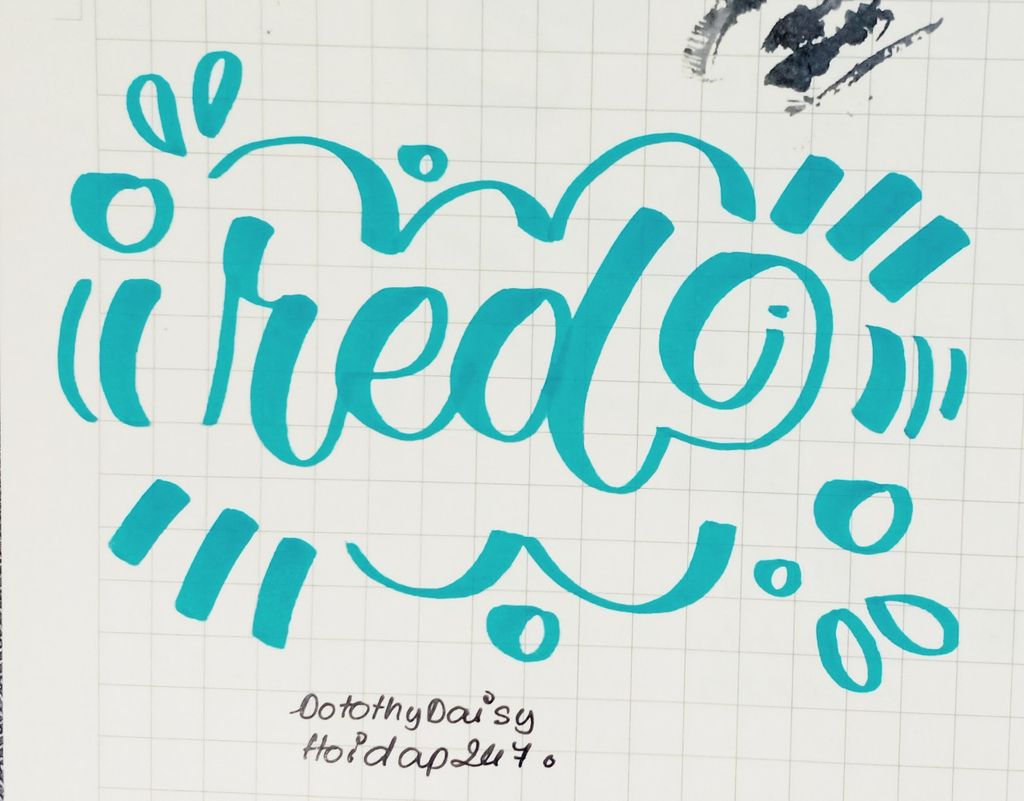 red
DotothyDaisy
Hoidap247.